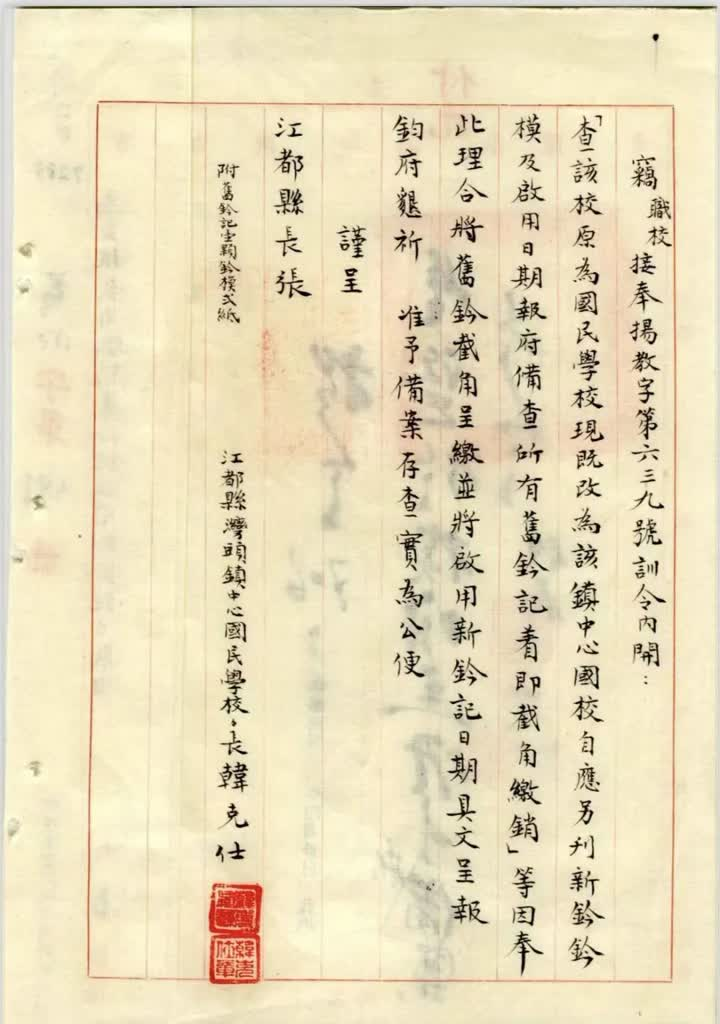 竊職校接奉揚教字第六三九號訓令內開：
「查該校原為國民學校現既改為該鎮中心國校自應另刊新鈐鈐
模及啟用日期報府備查所有舊鈐記着即截角繳銷」等因奉
此理合將舊鈐截角呈繳並將啟用新鈐記日期具文呈報
鈞府懇祈 准予備案存查實為公便
謹呈
江都縣長張
附舊鈐記壹顆鈐模式紙
江都縣灣頭鎮中心國民學校、長韓克仕